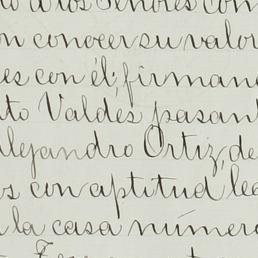 a los Señores con
on conocer su valor
es con él; firman
to Valdés pasan
alejandro Ortiz, de
s con aptitud le
la casa númer